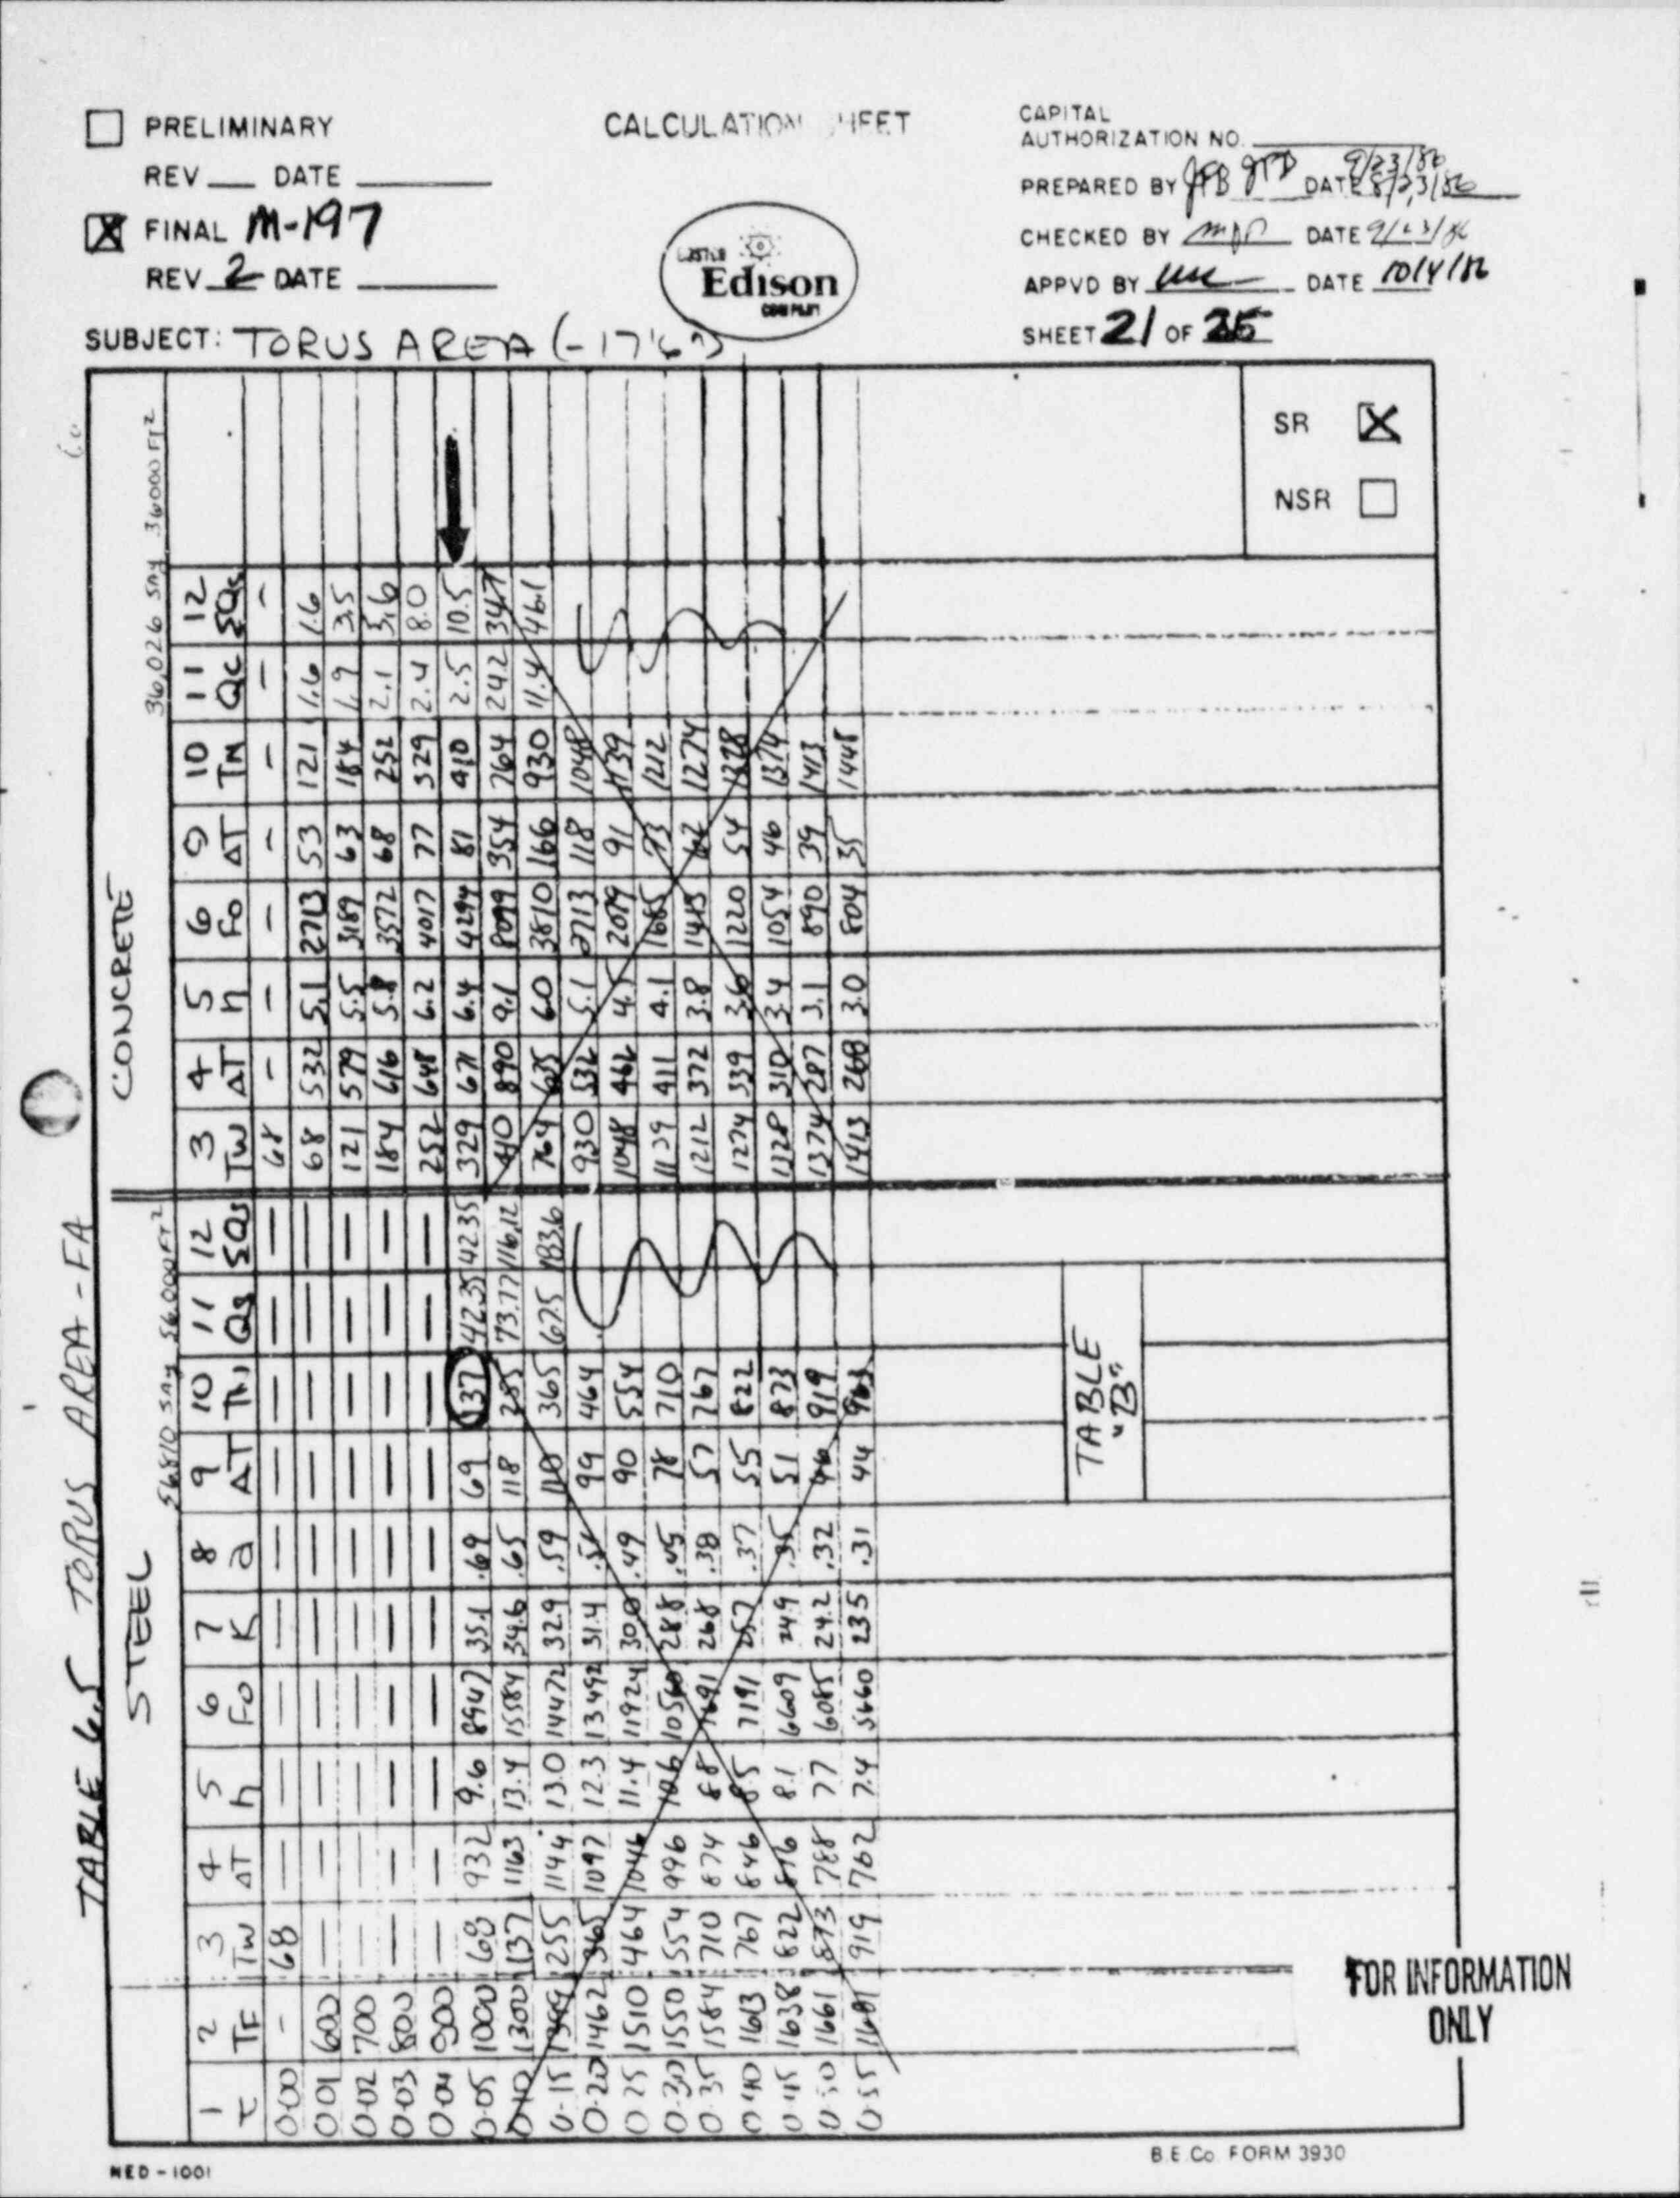 PRELIMINARY
REV DATE
FINAL M-197
REV 2 DATE
SUBJECT: TORUS AREA (-17'6")
CALCULATION
Edison
CAPITAL
AUTHORIZATION NO.
PREPARED BY JPB JPB DATE 9/23/86
CHECKED BY DATE
APPVD BY DATE 10/4/86
SHEET 21 OF
SR X
NSR
TABLE 6.5 TORUS AREA - FA
STEEL 56810 SAY 56000 FT²
CONCRETE 36,026 SAY 36000 FT²
1 2 3 4 5 6 7 8 9 10 11 12 3 4 5 6 9 10 11 12
τ TF TW ΔT h Fo K a ΔT TN Qs ΣQs TW ΔT h Fo ΔT TN Qc ΣQc
0.00 - 68 — — — — — — — — — 68 - - - - - - -
0.01 600 — — — — — — — — — — 68 532 5.1 2713 53 121 1.6 1.6
0.02 700 — — — — — — — — — — 121 579 5.5 3189 63 184 1.9 3.5
0.03 800 — — — — — — — — — — 184 616 5.8 3572 68 252 2.1 3.6
0.04 900 — — — — — — — — — — 252 648 6.2 4017 77 329 2.4 8.0
0.05 1000 68 932 9.6 8947 35.1 .69 69 137 42.35 42.35 329 671 6.4 4294 81 410 2.5 10.5
0.10 1300 137 1163 13.4 15584 34.6 .65 118 255 73.77 116.12 410 890 9.1 8099 354 764 24.2 34.7
0.15 1399 255 1144 13.0 14472 32.9 .59 110 365 67.5 183.6 764 635 6.0 3810 166 930 11.4 46.1
0.20 1462 365 1097 12.3 13492 31.4 .54 99 464 930 532 5.1 2713 118 1048
0.25 1510 464 1046 11.4 11924 30.0 .49 90 554 1048 462 4.5 2079 91 1139
0.30 1550 554 996 10.6 10560 28.8 .45 78 710 1139 411 4.1 1685 73 1212
0.35 1584 710 874 8.8 7691 26.8 .38 57 767 1212 372 3.8 1415 62 1274
0.40 1613 767 846 8.5 7191 25.7 .37 55 822 1274 339 3.6 1220 54 1328
0.45 1638 822 816 8.1 6609 24.9 .35 51 873 1328 310 3.4 1054 46 1374
0.50 1661 873 788 7.7 6085 24.2 .32 46 919 1374 287 3.1 890 39 1413
0.55 1681 919 762 7.4 5660 23.5 .31 44 963 1413 268 3.0 804 35 1448
TABLE
"B"
FOR INFORMATION
ONLY
NED-1001
B.E.Co. FORM 3930